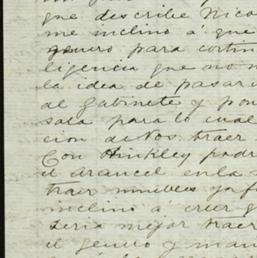 que describe Nico
me inclino á que
genero para cortin
ligencia que no
la idea de pasar
al gabinete y pon
sala para lo cual
cion de Nos. traer
Con Hinkley podr
el arancel en la
traer muebles ya
inclino á creer q
seria mejor traer
el genero y man